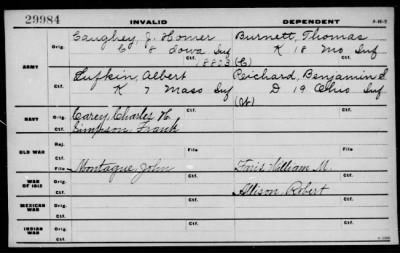 29984
INVALID
DEPENDENT
ARMY
Orig.
Caughey, J. Homer
Burnett, Thomas
C 8 Iowa Inf
K 18 Mo Inf
Ctf.
18803 (C)
Orig.
Lufkin, Albert
Reichard, Benjamin S
K 7 Mass Inf
D 19 Ohio Inf
Ctf.
(W)
NAVY
Orig.
Carey, Charles H.
Ctf.
Simpson, Frank
OLD WAR
Rej.
Ctf.
File
File
Montague, John
Faris William M.
WAR OF 1812
Orig.
Allison, Robert
Ctf.
Ctf.
MEXICAN WAR
Orig.
Ctf.
Ctf.
INDIAN WAR
Orig.
Ctf.
Ctf.